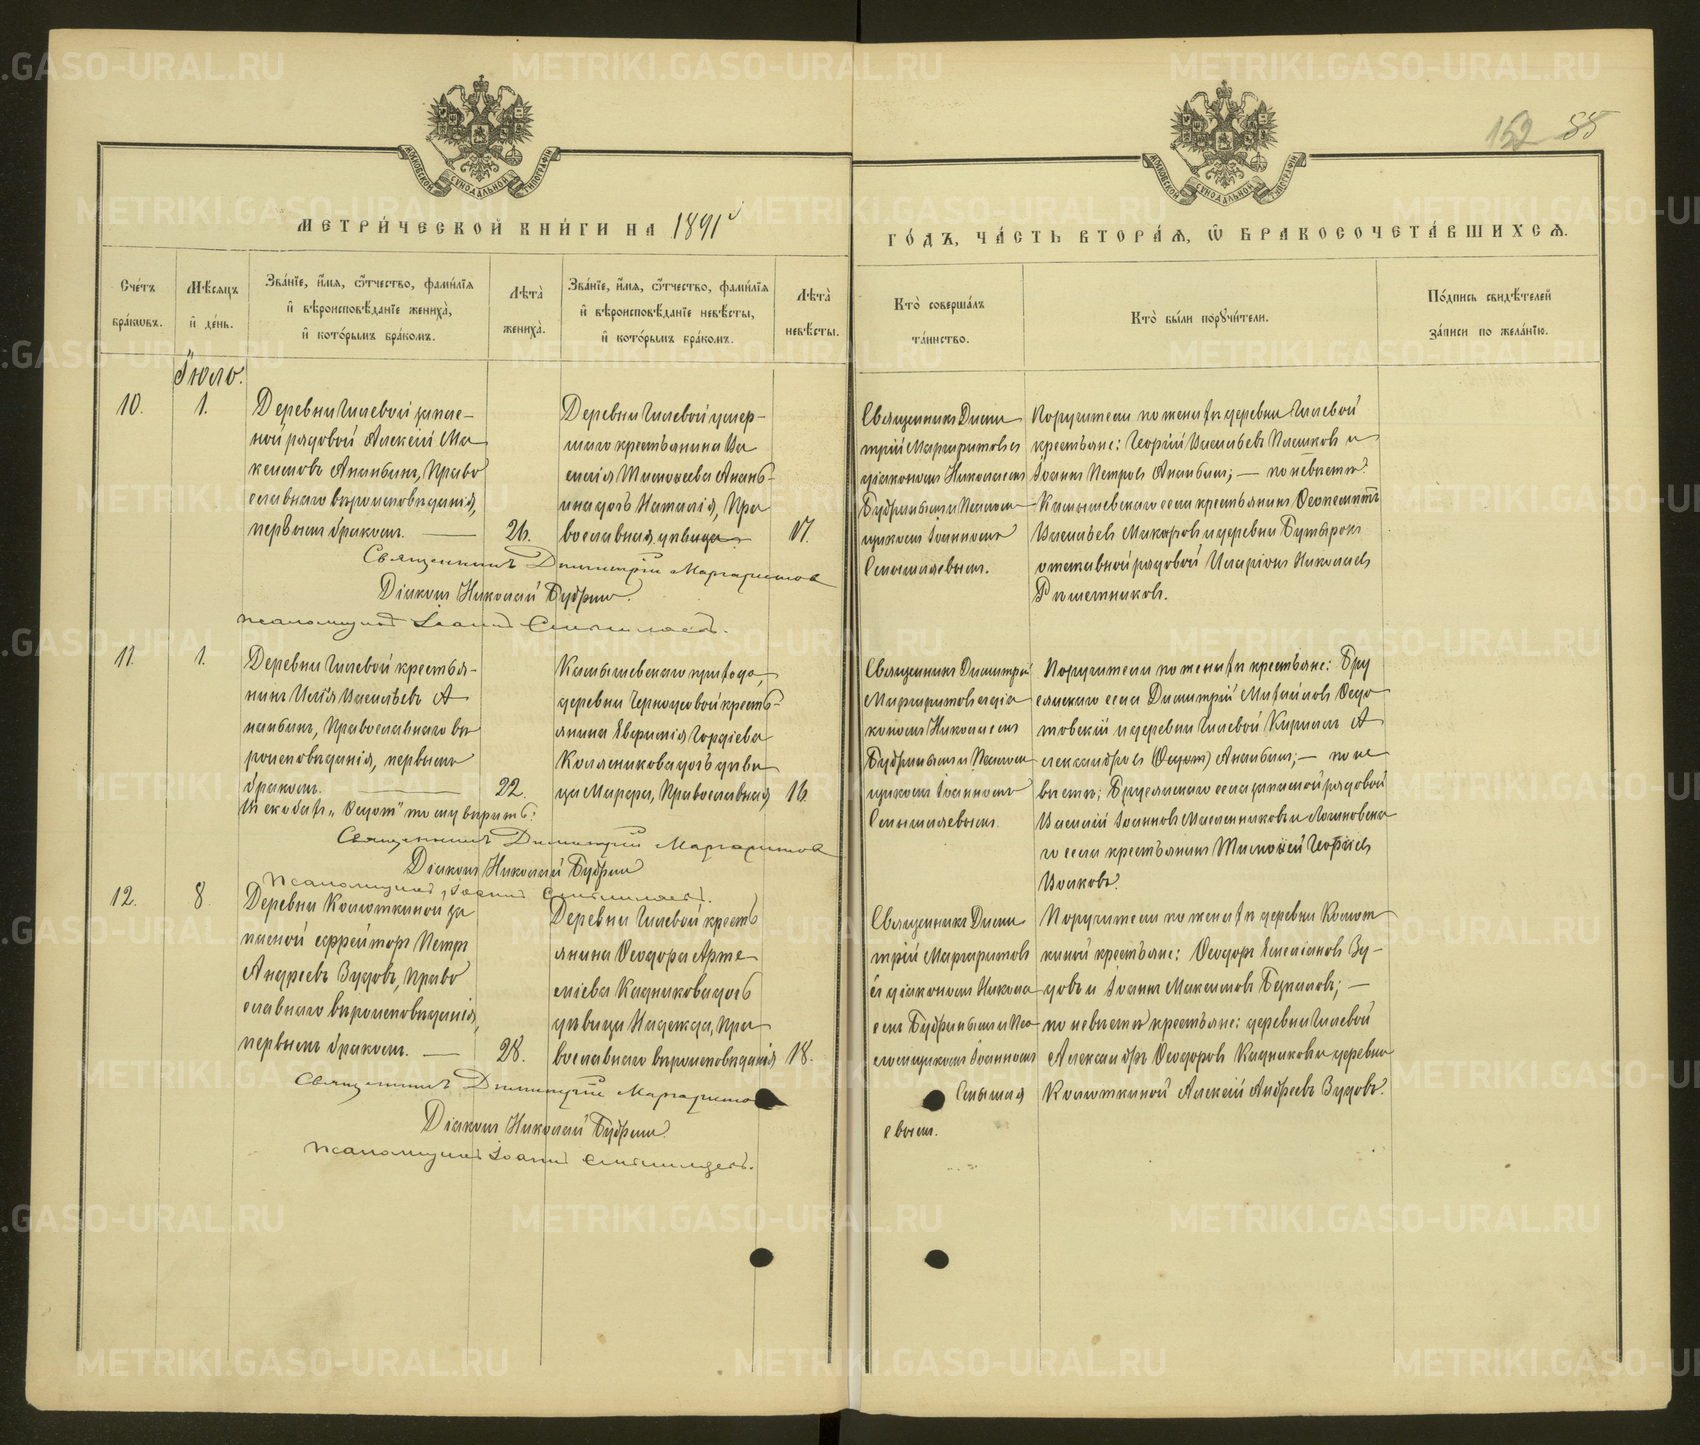 152 88
МОСКОВСКОЙ СѴНОДАЛЬНОЙ ТИПОГРАФІИ
МОСКОВСКОЙ СѴНОДАЛЬНОЙ ТИПОГРАФІИ
МЕТРИ́ЧЕСКОЙ КНИ́ГИ НА 1891
ГО́ДЪ, ЧА́СТЬ ВТОРА́Я, Ѡ҆ БРАКОСОЧЕТА́ВШИХСЯ.
Сче́тъ бра́ковъ.
Мѣ́сяцъ и҆ де́нь.
Зва́нїе, и҆́мя, ѻ҆́тчество, фами́лїя
и҆ вѣроисповѣ́данїе жениха̀,
и҆ кото́рымъ бра́комъ.
Лѣта̀
жениха̀.
Зва́нїе, и҆́мя, ѻ҆́тчество, фами́лїя
и҆ вѣроисповѣ́данїе невѣ́сты,
и҆ кото́рымъ бра́комъ.
Лѣта̀
невѣ́сты.
Кто̀ соверша́лъ
та́инство.
Кто̀ бы́ли порꙋчи́тели.
По́дпись свидѣ́телей
за́писи по жела́нїю.
Іюль.
10.
1.
Деревни Гилевой запас-
ной рядовой Алексій Ма
ксимовъ Ананьинъ, Право
славнаго вѣроисповѣданія,
первымъ бракомъ.
26.
Деревни Гилевой умер-
шаго крестьянина Ва
силія Тимофеева Анань-
ина дочь Наталія, Пра
вославная, дѣвица.
17.
Священникъ Дими
трій Маргаритовъ съ
діакономъ Николаемъ
Бубринымъ и Псалом
щикомъ Іоанномъ
Смышляевымъ.
Поручители по женихѣ деревни Гилевой
крестьяне: Георгій Васильевъ Пашковъ и
Іоаннъ Петровъ Ананьинъ; — по невѣстѣ:
Камышевскаго села крестьянинъ Феоктистъ
Васильевъ Макаровъ и деревни Бутырокъ
отставной рядовой Иларіонъ Николаевъ
Рѣшетниковъ.
Священникъ Димитрій Маргаритовъ
Діаконъ Николай Бубринъ.
Псаломщикъ Іоаннъ Смышляевъ.
11.
1.
Деревни Гилевой крестья-
нинъ Илія Васильевъ А
наньинъ, Православнаго вѣ
роисповѣданія, первымъ
бракомъ.
22.
Камышевскаго прихода,
деревни Черноусовой кресть-
янина Евфимія Гордіева
Колясникова дочь дѣви
ца Марфа, Православная,
16.
Священникъ Димитрій
Маргаритовъ съ діа
кономъ Николаемъ
Бубринымъ и Псалом
щикомъ Іоанномъ
Смышляевымъ.
Поручители по женихѣ крестьяне: Бру
сянскаго села Димитрій Михайловъ Федо
товскій и деревни Гилевой Кириллъ А
лександровъ (Федотъ) Ананьинъ; — по не
вѣстѣ: Брусянскаго села запасной рядовой
Василій Іоанновъ Масленниковъ и Логиновска
го села крестьянинъ Тимофей Георгіевъ
Волковъ.
въ скобахъ „Федотъ“ тому вѣрить:
Священникъ Димитрій Маргаритовъ
Діаконъ Николай Бубринъ
Псаломщикъ Іоаннъ Смышляевъ.
12.
8.
Деревни Колюткиной за
пасной ефрейторъ Петръ
Андреевъ Зудовъ, Право
славнаго вѣроисповѣданія,
первымъ бракомъ.
28.
Деревни Гилевой кресть
янина Феодора Арте
міева Кадникова дочь
дѣвица Надежда, Пра
вославнаго вѣроисповѣданія
18.
Священникъ Дими
трій Маргаритовъ
съ діакономъ Никола
емъ Бубринымъ и Пса
ломщикомъ Іоанномъ
Смышля
евымъ.
Поручители по женихѣ деревни Колют
киной крестьяне: Феодоръ Емеліановъ Зу-
довъ и Іоаннъ Максимовъ Беркаловъ; —
по невѣстѣ крестьяне: деревни Гилевой
Александръ Феодоровъ Кадниковъ и деревни
Колюткиной Алексій Андреевъ Зудовъ.
Священникъ Димитрій Маргаритовъ
Діаконъ Николай Бубринъ.
Псаломщикъ Іоаннъ Смышляевъ.
METRIKI.GASO-URAL.RU